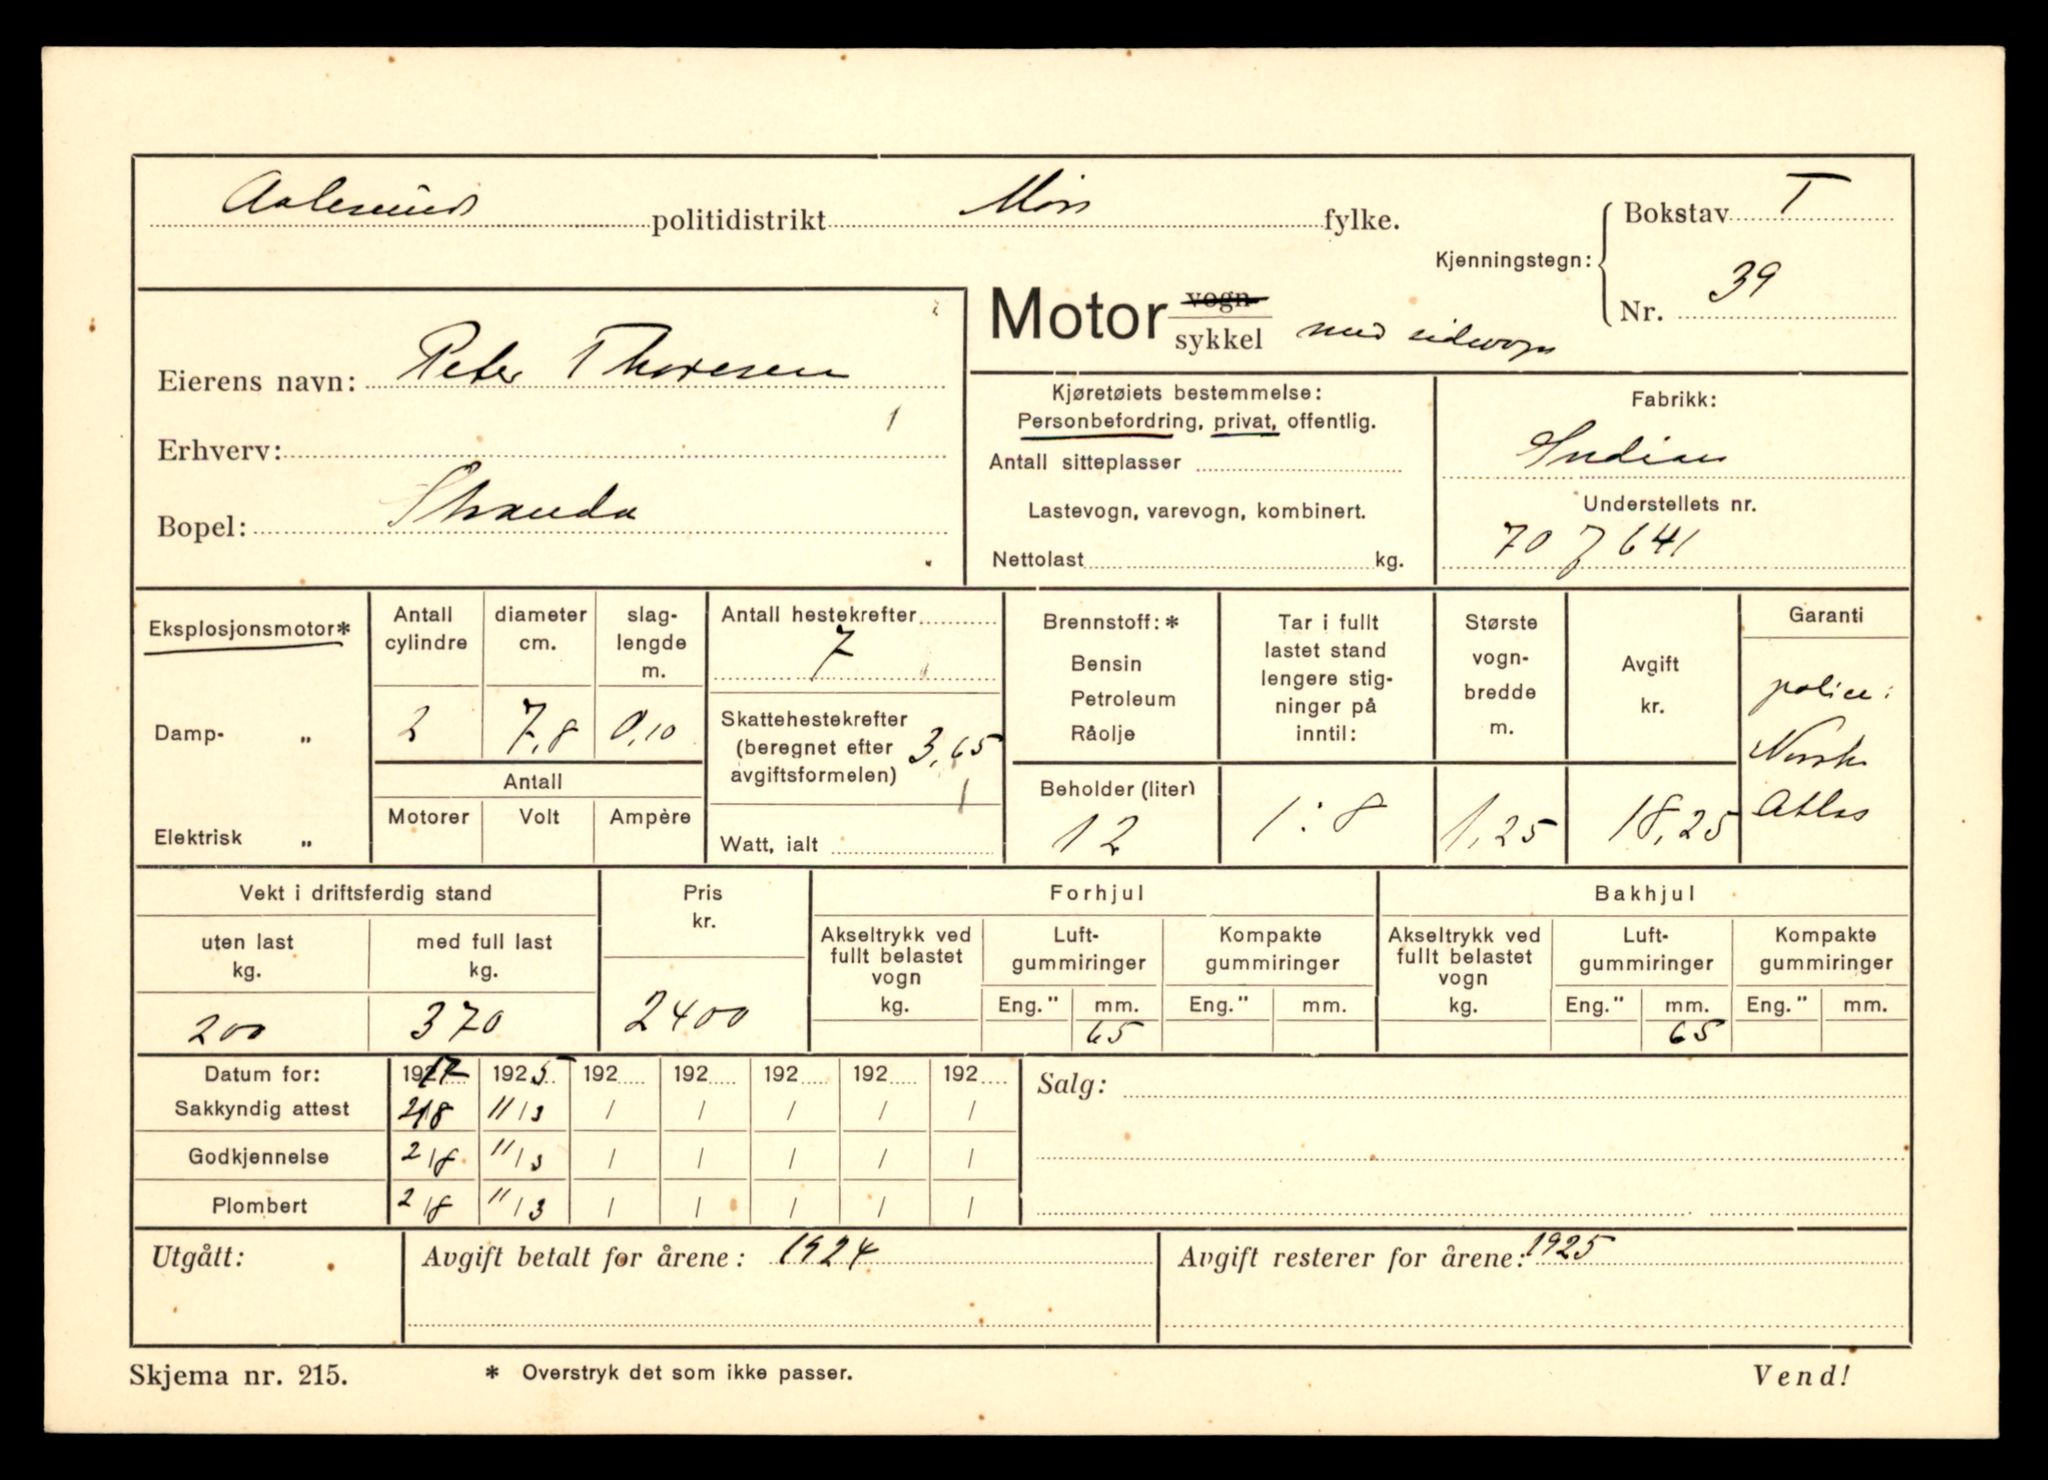 Aalesund politidistrikt Møre fylke.
Kjenningstegn: Bokstav T
Nr. 39
Motor vogn
sykkel med sidevogn
Eierens navn: Peter Thoresen
Erhverv:
Bopel: Stranda
Kjøretøiets bestemmelse:
Personbefordring, privat, offentlig.
Antall sitteplasser
Lastevogn, varevogn, kombinert.
Nettolast kg.
Fabrikk:
Indian
Understellets nr.
70 J 641
Eksplosjonsmotor*
Damp- „
Elektrisk „
Antall cylindre
2
diameter cm.
7,8
slag-lengde m.
0,10
Antall
Motorer Volt Ampère
Antall hestekrefter
7
Skattehestekrefter
(beregnet efter
avgiftsformelen) 3,65
Watt, ialt
Brennstoff: *
Bensin
Petroleum
Råolje
Beholder (liter)
12
Tar i fullt
lastet stand
lengere stig-
ninger på
inntil:
1:8
Største
vogn-
bredde
m.
1,25
Avgift
kr.
18,25
Garanti
police:
Norske
Atlas
Vekt i driftsferdig stand
uten last
kg.
200
med full last
kg.
370
Pris
kr.
2400
Forhjul
Akseltrykk ved
fullt belastet
vogn
kg.
Luft-
gummiringer
Eng." mm.
65
Kompakte
gummiringer
Eng." mm.
Bakhjul
Akseltrykk ved
fullt belastet
vogn
kg.
Luft-
gummiringer
Eng." mm.
65
Kompakte
gummiringer
Eng." mm.
Datum for: 1917 1925 192 192 192 192 192
Sakkyndig attest 2/8 11/3 / / / / /
Godkjennelse 2/8 11/3 / / / / /
Plombert 2/8 11/3 / / / / /
Salg:
Utgått:
Avgift betalt for årene: 1924
Avgift resterer for årene: 1925
Skjema nr. 215.
* Overstryk det som ikke passer.
Vend!